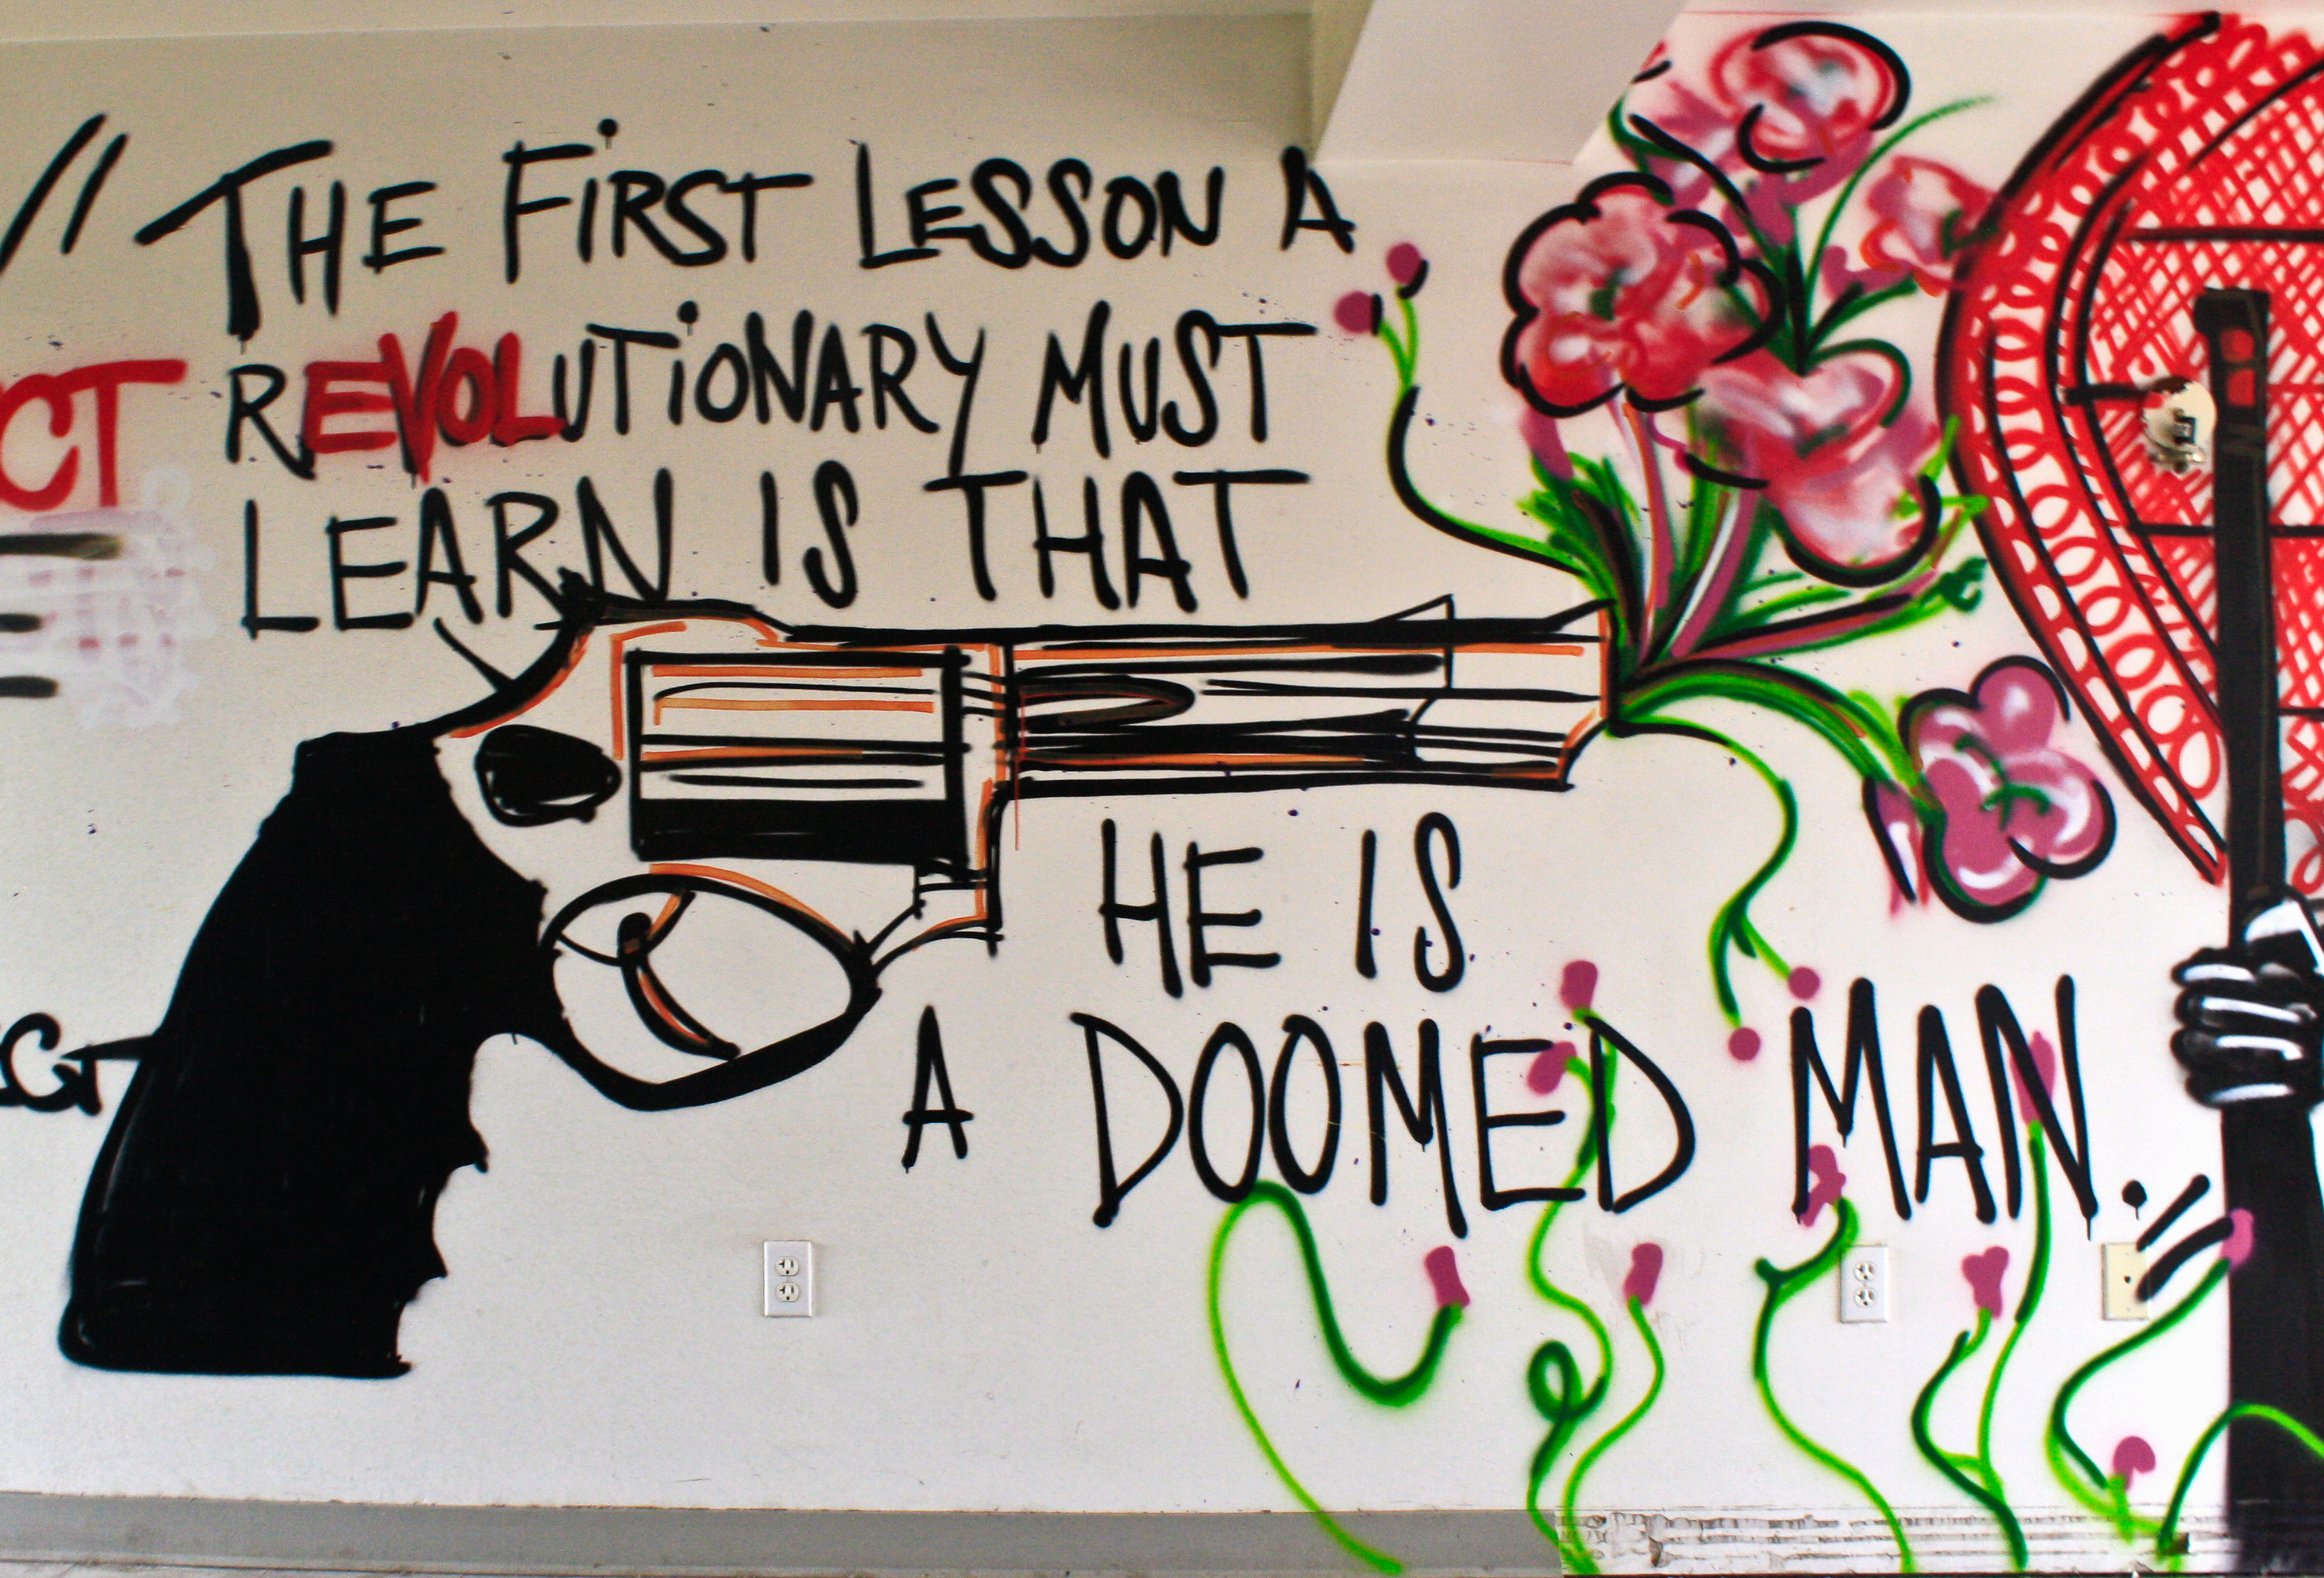 "THE FiRST LESSON A
CT REVOLUTiONARY MUST
LEARN IS THAT
HE IS
A DOOMED MAN."